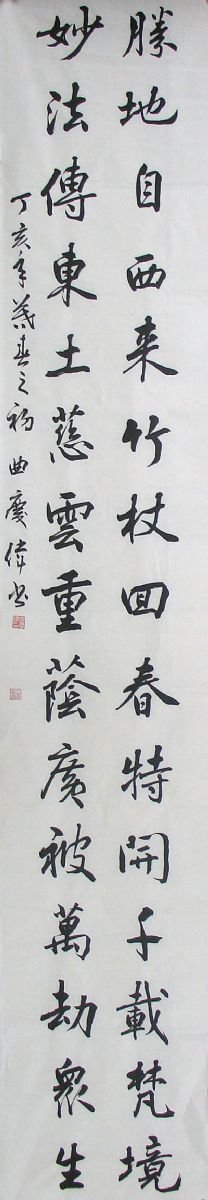 勝地自西来竹杖回春特開千載梵境
妙法傳東土慈雲重蔭廣被萬劫眾生
丁亥年暮春之初曲慶偉书